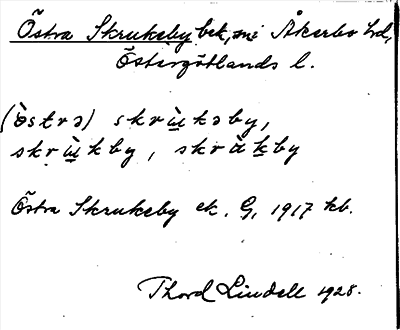 Östra Skrukeby bek, sn i Åkerbo hd,
Östergötlands l.
(òstrə) skrùkəby,
skrùkby, skràkby
Östra Skrukeby ek. G, 1917 kb.
Thord Lindell 1928.